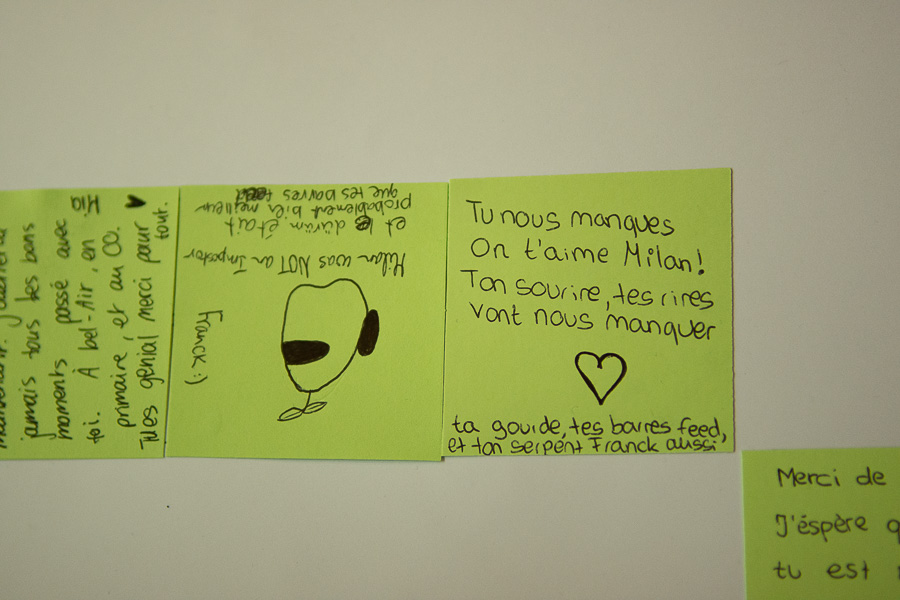 jamais tous les bons
moments passé avec
toi. À bel-Air, en
primaire, et au CO.
Tu es génial merci pour
tout.
Mia
Milan was NOT an Impostor
et le dürüm était
probablement bien meilleur
que tes barres feed
Franck :)
Tu nous manques
On t'aime Milan!
Ton sourire, tes rires
vont nous manquer
ta gourde, tes barres feed,
et ton serpent Franck aussi
Merci de
J'éspère q
tu est